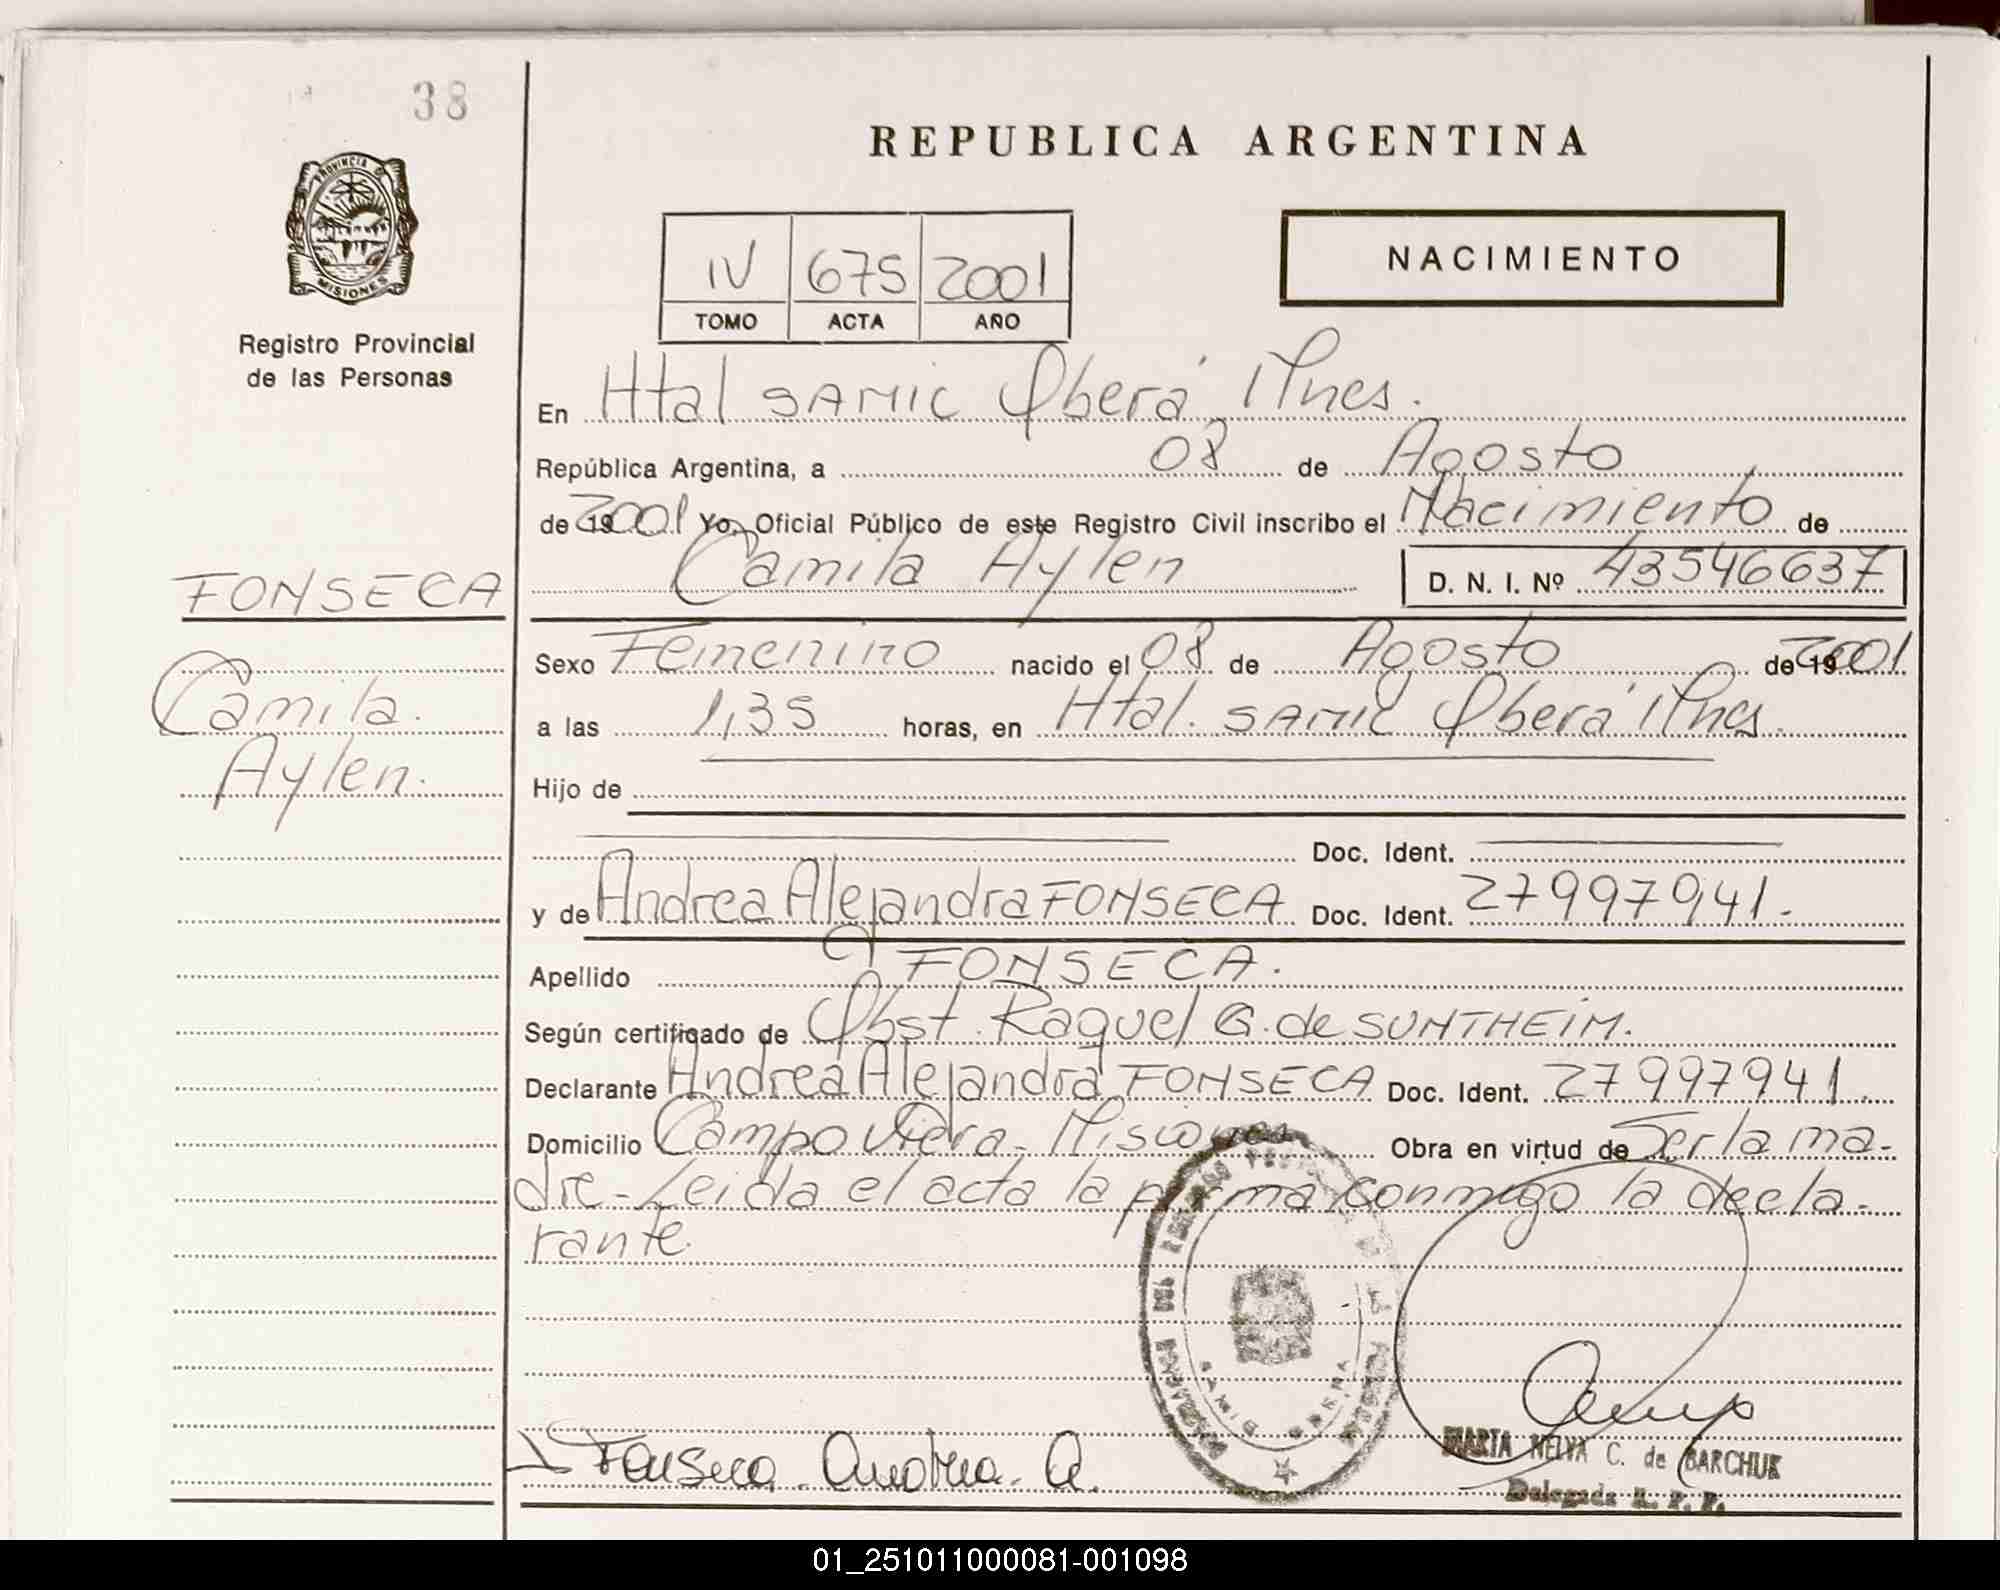 38
REPUBLICA ARGENTINA
PROVINCIA DE
MISIONES
Registro Provincial
de las Personas
IV 675 2001
TOMO ACTA AÑO
NACIMIENTO
En Htal SAMIC Oberá Mnes.
República Argentina, a 08 de Agosto
de 19 2001 Yo, Oficial Público de este Registro Civil inscribo el Nacimiento de
Camila Aylen D. N. I. Nº 43546637
FONSECA
Camila
Aylen.
Sexo Femenino nacido el 08 de Agosto de 19 2001
a las 1,35 horas, en Htal. SAMIC Oberá Mnes.
Hijo de
Doc. Ident.
y de Andrea Alejandra FONSECA Doc. Ident. 27997941.
Apellido FONSECA.
Según certificado de Obst. Raquel G. de SUNTHEIM.
Declarante Andrea Alejandra FONSECA Doc. Ident. 27997941.
Domicilio Campo Viera - Misiones Obra en virtud de Ser la ma-
dre - Leida el acta la firma conmigo la decla-
rante.
Fonseca Andrea A.
MARTA NELVA C. de BARCHUK
Delegada R. P. P.
01_251011000081-001098